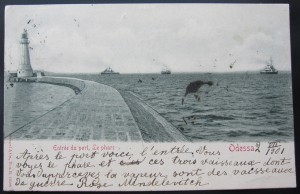 Entrée du port. Le phare
Odessa 2 VII 1901
Après le port voici l'entrée. Vous
voyez le phare et ces trois vaisseaux dont
vous appercevez la vapeur, sont des vaisseaux
de guerre Rose Mendelevitch